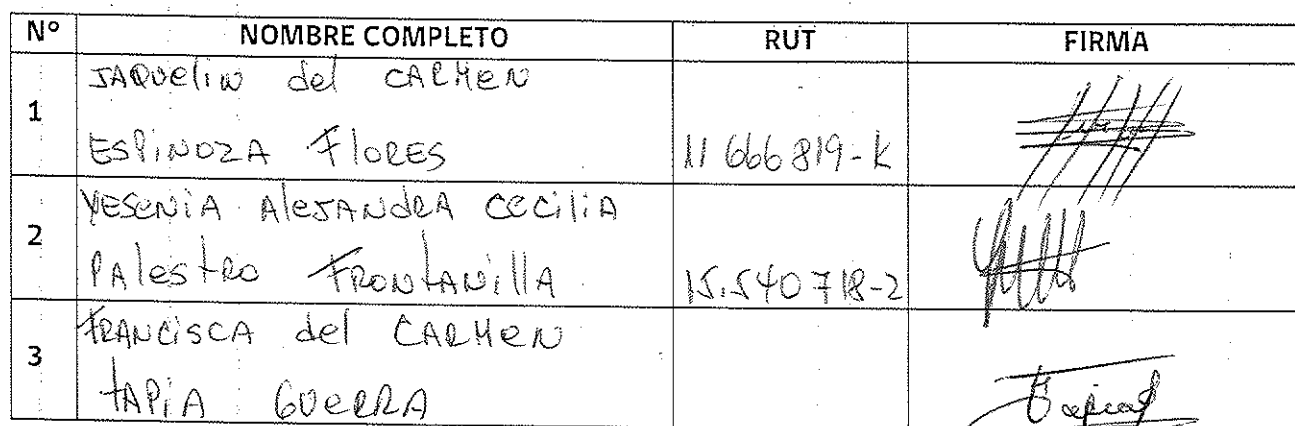 N° NOMBRE COMPLETO RUT FIRMA
JAQUeliN del CARMeN
1
ESPiNOZA FloRES 11 666 819-K
YESeNiA AleJANdRA CeCiliA
2
PAlestRo FRONtANillA 15.540 718-2
FRANCiSCA del CARMeN
3
tAPiA GUeRRA